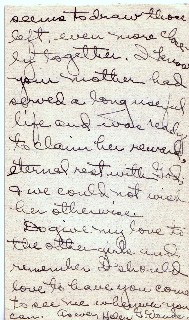 seems to draw those
left, even more close-
ly together. I know
your mother had
served a long useful
life and was ready
to claim her reward,
eternal rest with God,
& we could not wish
her otherwise.
Do give my love to
the other girls and
remember I should
love to have you come
to see me whenever you
can. As ever Helen